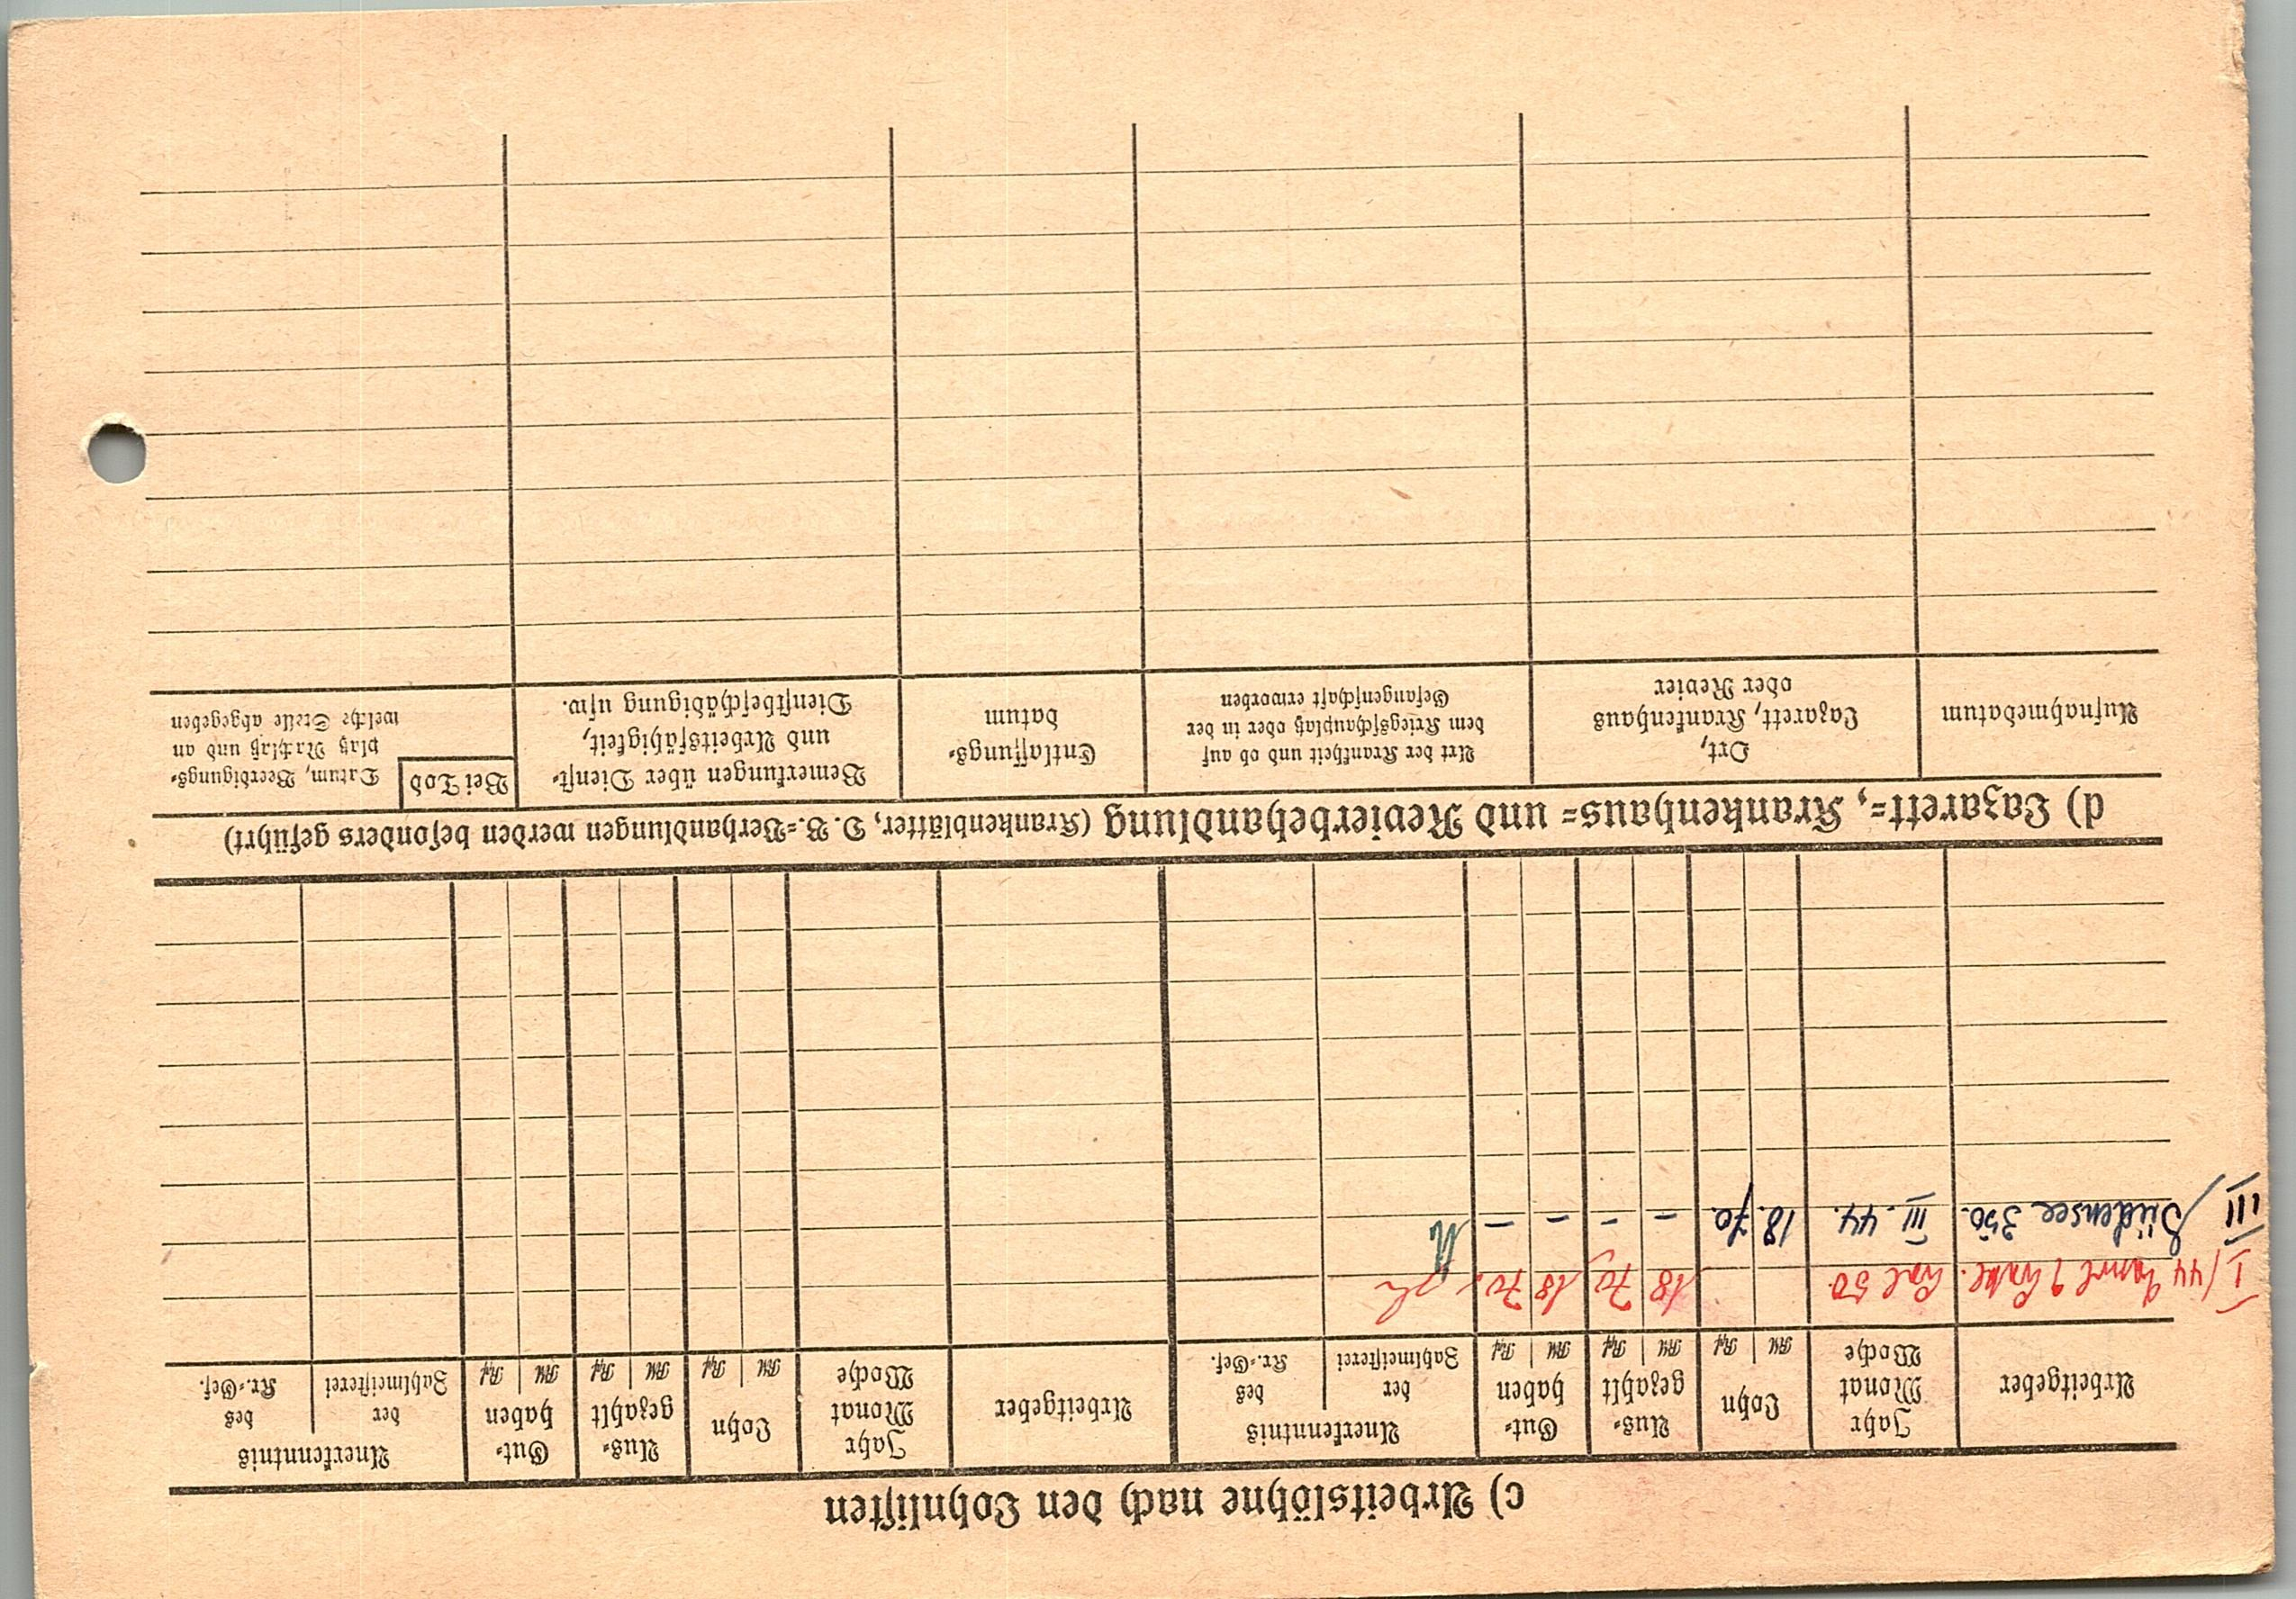 c) Arbeitslöhne nach den Lohnlisten
Arbeitgeber Jahr Monat Woche Lohn Aus- gezahlt Gut- haben Anerkenntnis Arbeitgeber Jahr Monat Woche Lohn Aus- gezahlt Gut- haben Anerkenntnis
RM Rpf RM Rpf RM Rpf der Zahlmeisterei des Kr.-Gef. RM Rpf RM Rpf RM Rpf der Zahlmeisterei des Kr.-Gef.
I/44 50 18 70 18 70
III Südensee 350. III. 44. 18. 70. – – – –
d) Lazarett-, Krankenhaus- und Revierbehandlung (Krankenblätter, D. B.-Verhandlungen werden besonders geführt)
Aufnahmedatum
Ort,
Lazarett, Krankenhaus
oder Revier
Art der Krankheit und ob auf
dem Kriegsschauplatz oder in der
Gefangenschaft erworben
Entlassungs-
datum
Bemerkungen über Dienst-
und Arbeitsfähigkeit,
Dienstbeschädigung usw.
Bei Tod
Datum, Beerdigungs-
platz Nachlaß und an
welche Stelle abgegeben